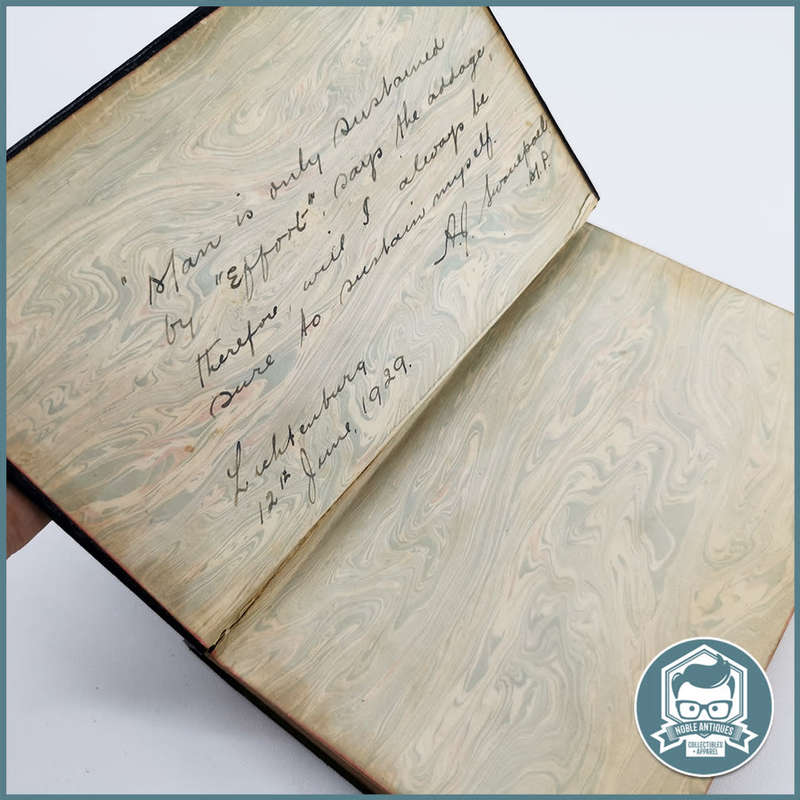 "Man is only sustained
by "Effort", says the addage,
therefore, will I always be
sure to sustain myself.
A.J. Swanepoel
M.P.
Lichtenburg
12th June, 1929.
NOBLE ANTIQUES
COLLECTIBLES
+ APPAREL